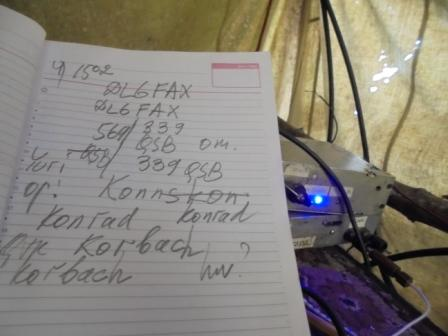 4) 1502
DL6FAX
DL6FAX
569/339
QSB/ QSB om.
Yuri 339 QSB
op: Konns kon
Konrad Konrad
Korbach
Korbach hw?